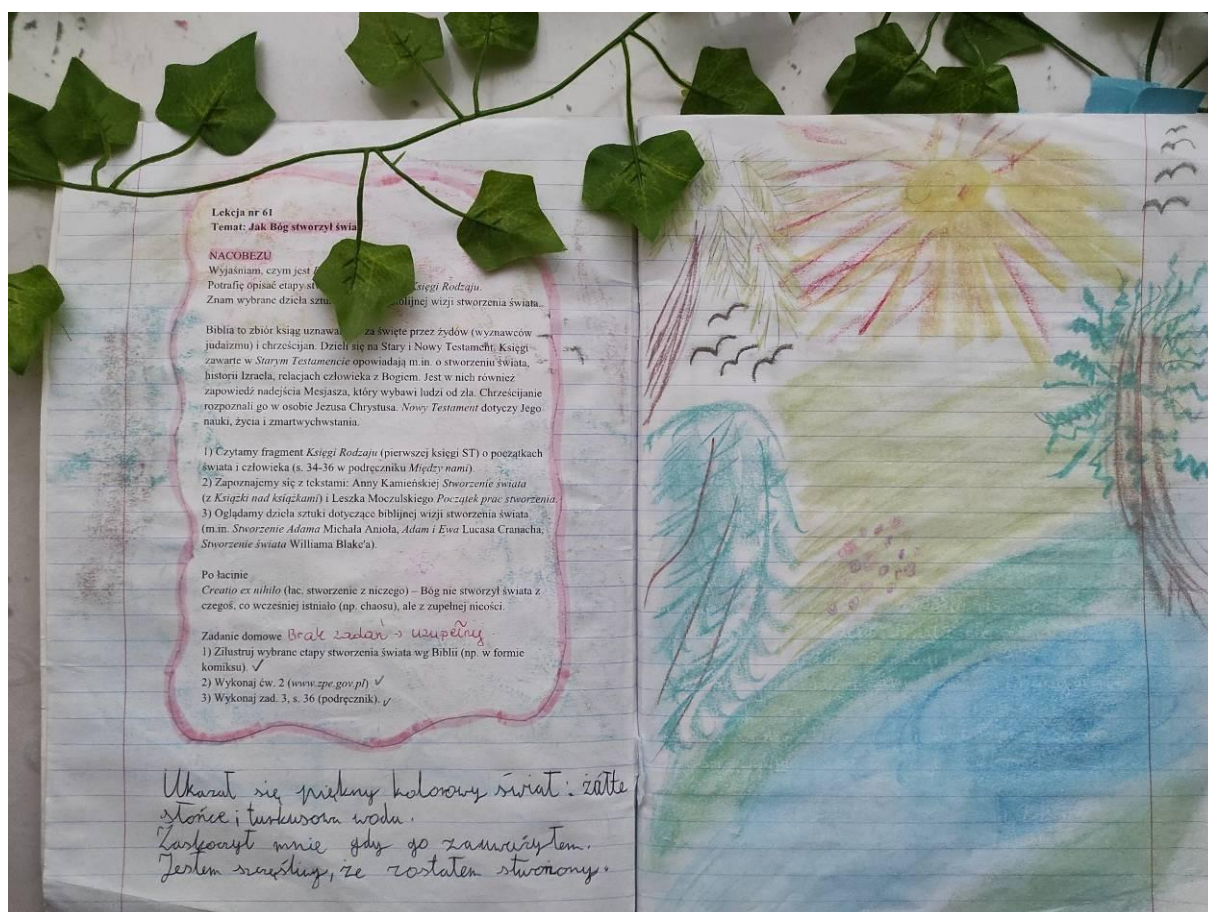 Lekcja nr 61
Temat: Jak Bóg stworzył świa
NACOBEZU
Wyjaśniam, czym jest
Potrafię opisać etapy st Księgi Rodzaju.
Znam wybrane dzieła sztu blijnej wizji stworzenia świata.
Biblia to zbiór ksiąg uznawa za święte przez żydów (wyznawców
judaizmu) i chrześcijan. Dzieli się na Stary i Nowy Testament. Księgi
zawarte w Starym Testamencie opowiadają m.in. o stworzeniu świata,
historii Izraela, relacjach człowieka z Bogiem. Jest w nich również
zapowiedź nadejścia Mesjasza, który wybawi ludzi od zła. Chrześcijanie
rozpoznali go w osobie Jezusa Chrystusa. Nowy Testament dotyczy Jego
nauki, życia i zmartwychwstania.
1) Czytamy fragment Księgi Rodzaju (pierwszej księgi ST) o początkach
świata i człowieka (s. 34-36 w podręczniku Między nami).
2) Zapoznajemy się z tekstami: Anny Kamieńskiej Stworzenie świata
(z Książki nad książkami) i Leszka Moczulskiego Początek prac stworzenia.
3) Oglądamy dzieła sztuki dotyczące biblijnej wizji stworzenia świata
(m.in. Stworzenie Adama Michała Anioła, Adam i Ewa Lucasa Cranacha,
Stworzenie świata Williama Blake'a).
Po łacinie
Creatio ex nihilo (łac. stworzenie z niczego) – Bóg nie stworzył świata z
czegoś, co wcześniej istniało (np. chaosu), ale z zupełnej nicości.
Zadanie domowe Brak zadań → uzupełnij
1) Zilustruj wybrane etapy stworzenia świata wg Biblii (np. w formie
komiksu). ✓
2) Wykonaj ćw. 2 (www.zpe.gov.pl) ✓
3) Wykonaj zad. 3, s. 36 (podręcznik). ✓
Ukazał się piękny kolorowy świat: żółte
słońce i turkusowa woda.
Zaskoczył mnie gdy go zauważyłem.
Jestem szczęśliwy, że zostałem stworzony.